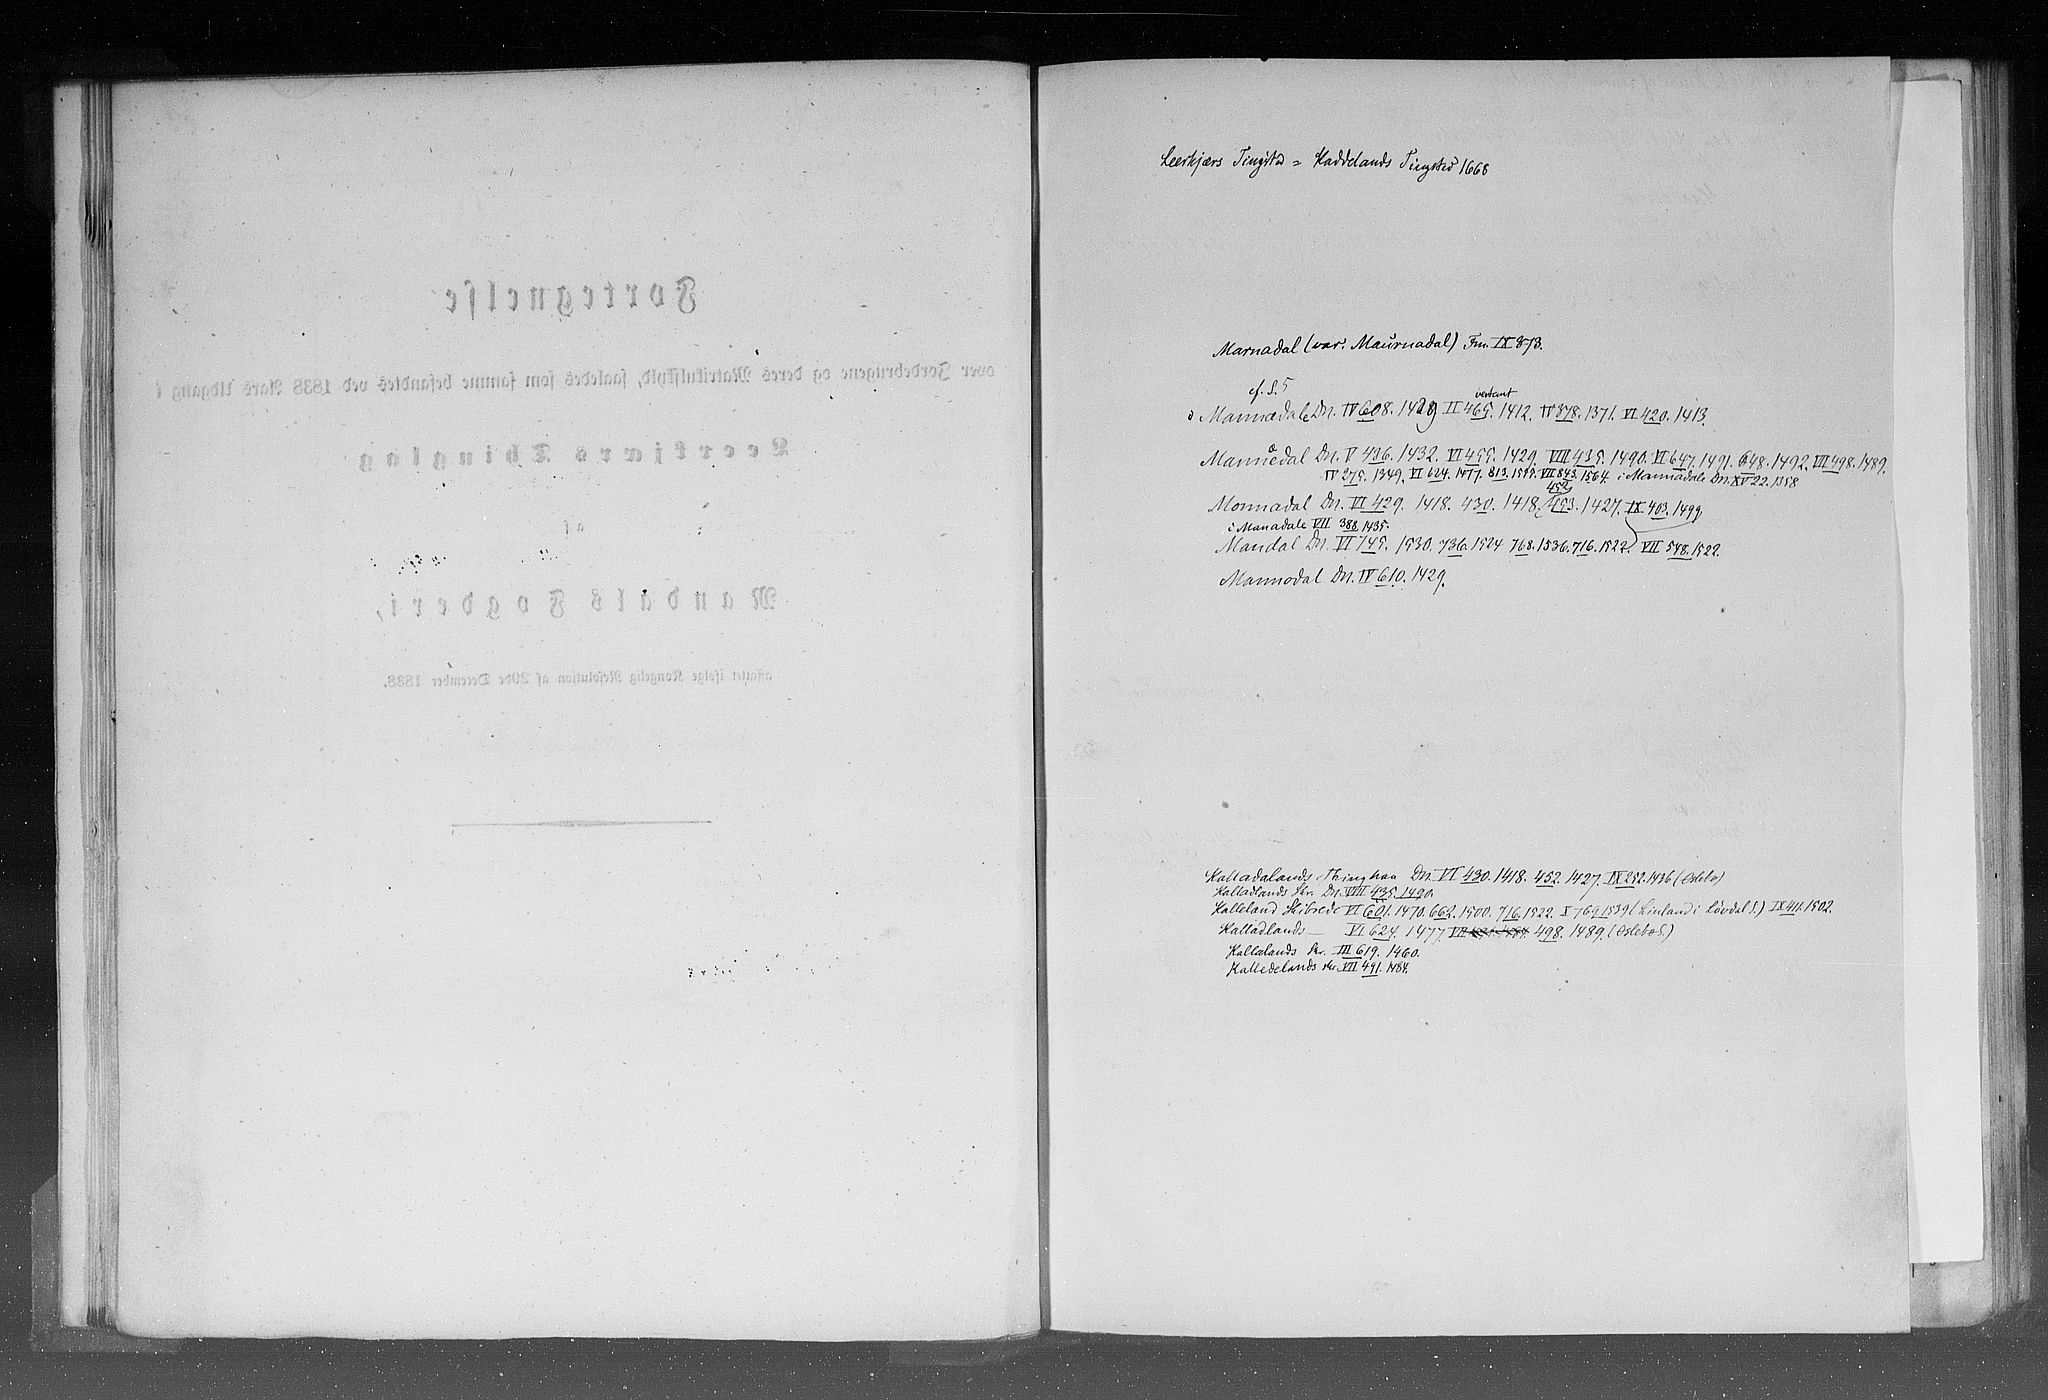 Fortegnelse
over Jordebrugene og deres Matrikulskyld, saaledes som samme befandtes ved 1838 Aars Udgang i
Leerkjærs Thinglag
af
Mandals Fogderi,
affattet ifølge Kongelig Resolution af 29de December 1838.
Leerkjærs Tingsted = Kaddelands Tingsted 1668
Marnadal (var. Maurnadal) Fm. IX 873.
cf. S. 5
Mannædale Dn. IV 608. 1429 II 465. 1412. IV 878. 1371. VI 420. 1413.
Mannedal Dn. V 436. 1432. VI 455. 1429. VIII 435. 1490. VI 647. 1491. 648. 1492. VII 498. 1489.
IV 275. 1349. VI 624. 1477. 813. 1599. VII 843. 1564. i Mannadale Dn. XV 22. 1358
452
Monnadal Dn. VI 429. 1418. 430. 1418. 453. 1427. IX 403. 1499.
i Manadale VII 388. 1435.
Mandal Dn. VI 745. 1530. 736. 1524 768. 1536. 716. 1522. VII 548. 1522.
Mannodal Dn. IV 610. 1429.
Kalladalands Thinghaa Dn. VI 430. 1418. 452. 1427. IX 252. 1436 (Øslebø)
Kalladlands Skr. Dn. VIII 435. 1490.
Kalleland Skibrede VI 601. 1470. 662. 1500. 716. 1522. X 769. 1539 (Linland i Løvdal S.) IX 411. 1502.
Kalladlands — VI 624. 1477 498. 1489. (Øslebø S.)
Kallalands Skr. III 619. 1460.
Kalledelands skr. VII 491. 1484.